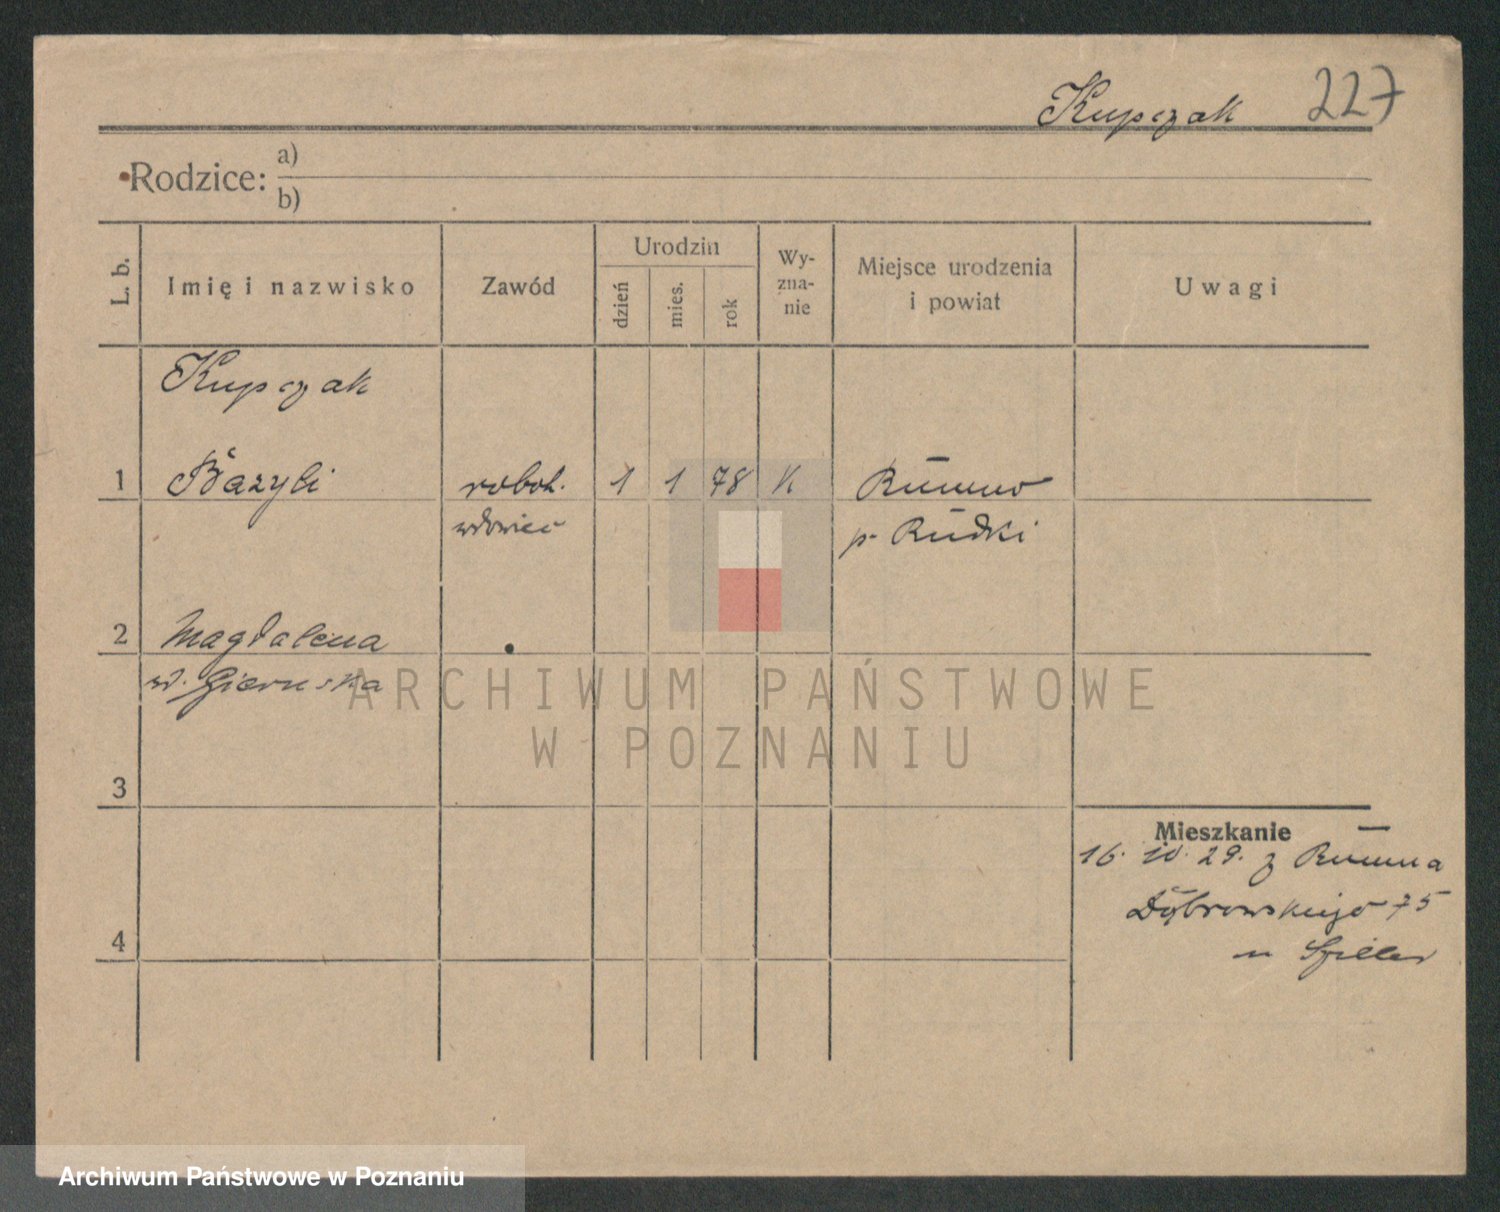 Kupczak 227
Rodzice:
a)
b)
L. b.
Imię i nazwisko
Zawód
Urodzin
dzień
mies.
rok
Wy-
zna-
nie
Miejsce urodzenia
i powiat
Uwagi
Kupczak
1 Bazyli robot. 1 1 78 K Rumno
wdowiec p. Rudki
2 Magdalena
3
Mieszkanie
16. 10. 29. z Rumna
Dąbrowskiego 75
4
ARCHIWUM PAŃSTWOWE
W POZNANIU
Archiwum Państwowe w Poznaniu